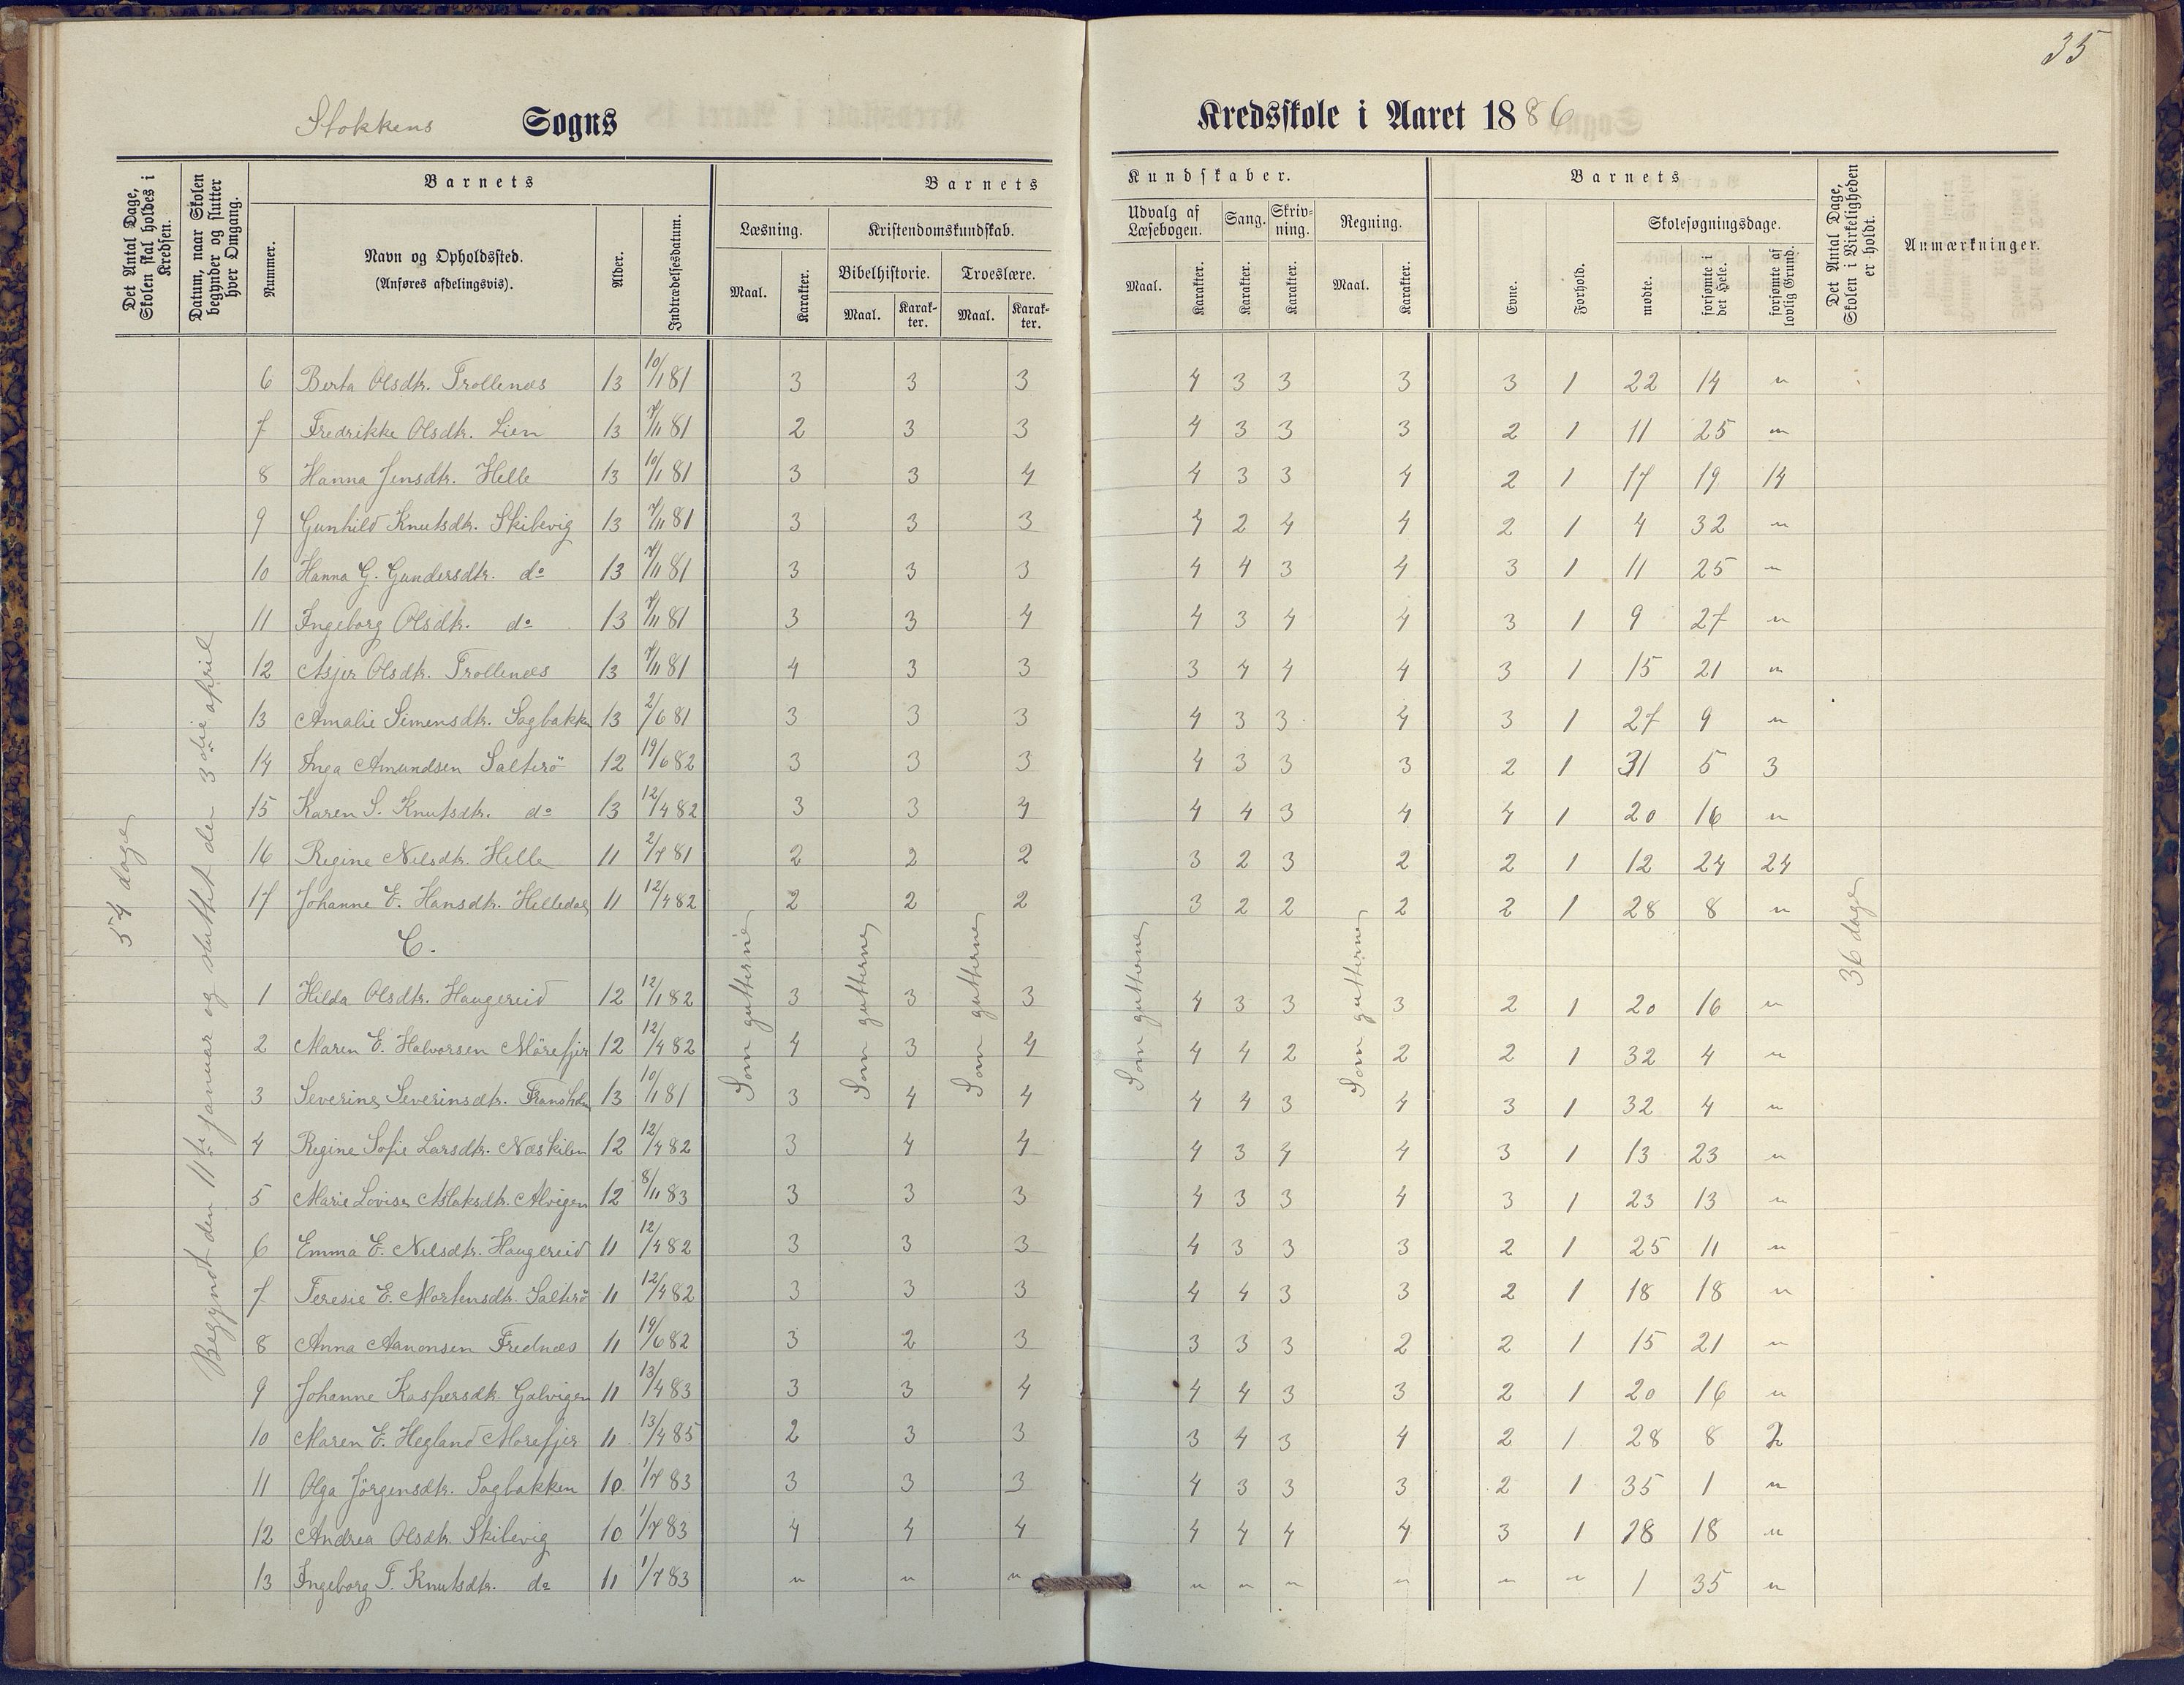 35
Stokkens Sogns Kredsskole i Aaret 1886
Det Antal Dage, Skolen skal holdes i Kredsen.
Datum, naar Skolen begynder og slutter hver Omgang.
Barnets
Nummer.
Navn og Opholdssted.
(Anføres afdelingsvis).
Alder.
Indtrædelsesdatum.
Barnets Kundskaber.
Læsning.
Maal. Karakter.
Kristendomskundskab.
Bibelhistorie. Troeslære.
Maal. Karakter. Maal. Karakter.
Udvalg af Læsebogen.
Maal. Karakter.
Sang.
Karakter.
Skrivning.
Karakter.
Regning.
Maal. Karakter.
Barnets
Evne.
Forhold.
Skolesøgningsdage.
mødte.
forsømte i det Hele.
forsømte af lovlig Grund.
Det Antal Dage, Skolen i Virkeligheden er holdt.
Anmærkninger.
54 dage
Begyndt den 11te januar og sluttet den 3die april
6 Berta Olsdtr. Trollenæs 13 10/1 81 3 3 3 4 3 3 3 3 1 22 14 "
7 Fredrikke Olsdtr. Lien 13 7/11 81 2 3 3 4 3 3 3 2 1 11 25 "
8 Hanna Jensdtr. Helle 13 10/1 81 3 3 4 4 3 3 4 2 1 17 19 14
9 Gunhild Knutsdtr. Skibevig 13 7/11 81 3 3 3 4 2 4 4 2 1 4 32 "
10 Hanna G. Gundersdtr. do 13 7/11 81 3 3 3 4 4 3 4 3 1 11 25 "
11 Ingeborg Olsdtr. do 13 7/11 81 3 3 4 4 3 4 4 3 1 9 27 "
12 Asjer Olsdtr. Trollenæs 13 7/11 81 4 3 3 3 4 4 4 3 1 15 21 "
13 Amalie Simensdtr. Sagbakken 13 2/6 81 3 3 3 4 3 3 4 3 1 27 9 "
14 Inga Amundsen Salterö 12 19/6 82 3 3 3 4 3 3 3 2 1 31 5 3
15 Karen S. Knutsdtr. do 13 12/4 82 3 3 4 4 4 3 4 4 1 20 16 "
16 Regine Nilsdtr. Helle 11 2/7 81 2 2 2 3 2 3 2 2 1 12 24 24
17 Johanne E. Hansdtr. Helledal 11 12/4 82 2 2 2 3 2 2 2 2 1 28 8 "
C.
Som gutterne
Som gutterne
Som gutterne
Som gutterne
Som gutterne
36 dage
1 Hilda Olsdtr. Haugereid 12 12/1 82 3 3 3 4 3 3 3 2 1 20 16 "
2 Maren E. Halvorsen Mörefjer 12 12/4 82 4 3 4 4 4 2 2 2 1 32 4 "
3 Severine Severinsdtr. Fransholm 13 10/1 81 3 4 4 4 4 3 4 3 1 32 4 "
4 Regine Sofie Larsdtr. Næskilen 12 12/4 82 3 4 4 4 3 4 4 3 1 13 23 "
5 Marie Lovise Aslaksdtr. Alvigen 12 8/11 83 3 3 3 4 3 3 4 3 1 23 13 "
6 Emma E. Nilsdtr. Haugereid 11 12/4 82 3 3 3 4 3 3 3 2 1 25 11 "
7 Teresie E. Mortensdtr. Salterö 11 12/4 82 3 3 3 4 4 3 3 2 1 18 18 "
8 Anna Aanonsen Frednæs 11 19/6 82 3 2 3 3 3 3 2 2 1 15 21 "
9 Johanne Kaspersdtr. Galvigen 11 13/4 83 3 3 4 4 4 3 3 2 1 20 16 "
10 Maren E. Hegland Morefjer 11 13/4 85 2 3 3 3 4 3 4 2 1 28 8 2
11 Olga Jörgensdtr. Sagbakken 10 1/7 83 3 3 3 4 3 3 3 2 1 35 1 "
12 Andrea Olsdtr. Skibevig 10 1/7 83 4 4 4 4 4 4 4 3 1 18 18 "
13 Ingeborg T. Knutsdtr. do 11 1/7 83 " " " " " " " " " 1 35 "